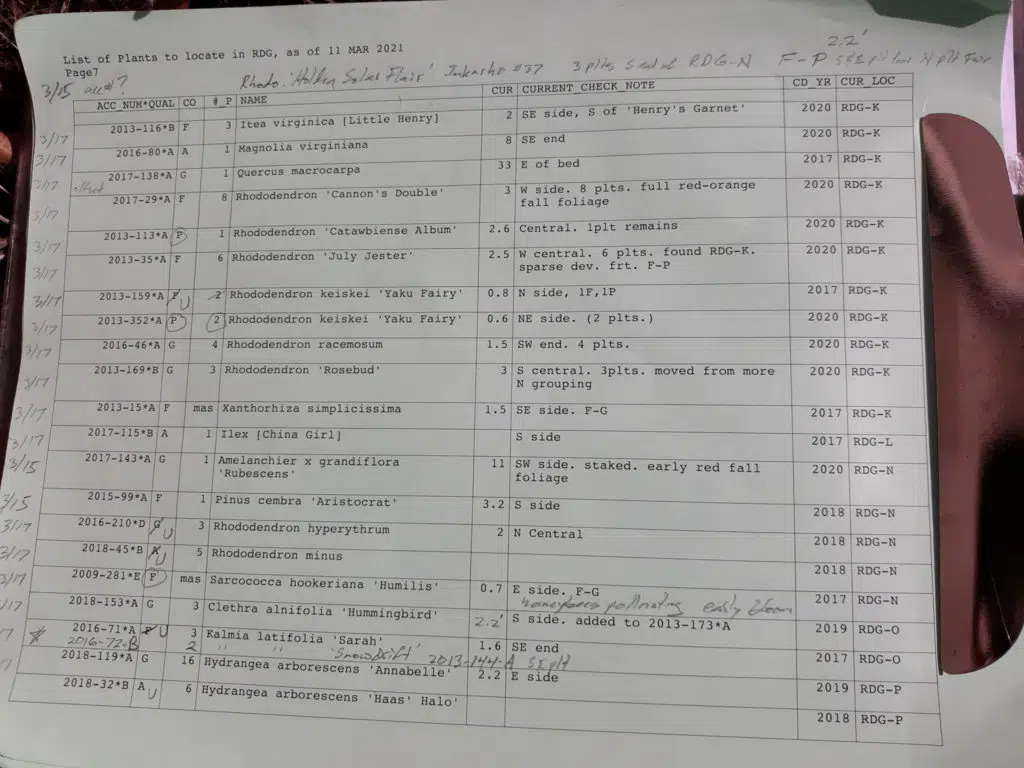 List of Plants to locate in RDG, as of 11 MAR 2021
Page7
2.2'
3/15 acc#? Rhodo. 'Hilken Silver Flair' #37 3 plts S end of RDG-N F-P
ACC_NUM*QUAL CO #_P NAME CUR CURRENT_CHECK_NOTE CD_YR CUR_LOC
3/17 2013-116*B F 3 Itea virginica [Little Henry] 2 SE side, S of 'Henry's Garnet' 2020 RDG-K
3/17 2016-80*A A 1 Magnolia virginiana 8 SE end 2020 RDG-K
3/17 2017-138*A G 1 Quercus macrocarpa 33 E of bed 2017 RDG-K
3/17 2017-29*A F 8 Rhododendron 'Cannon's Double' 3 W side. 8 plts. full red-orange
fall foliage 2020 RDG-K
3/17 2013-113*A P 1 Rhododendron 'Catawbiense Album' 2.6 Central. 1plt remains 2020 RDG-K
3/17 2013-35*A F 6 Rhododendron 'July Jester' 2.5 W central. 6 plts. found RDG-K.
sparse dev. frt. F-P 2020 RDG-K
3/17 2013-159*A F U 2 Rhododendron keiskei 'Yaku Fairy' 0.8 N side, 1F,1P 2017 RDG-K
3/17 2013-352*A P 2 Rhododendron keiskei 'Yaku Fairy' 0.6 NE side. (2 plts.) 2020 RDG-K
3/17 2016-46*A G 4 Rhododendron racemosum 1.5 SW end. 4 plts. 2020 RDG-K
3/17 2013-169*B G 3 Rhododendron 'Rosebud' 3 S central. 3plts. moved from more
N grouping 2020 RDG-K
3/17 2013-15*A F mas Xanthorhiza simplicissima 1.5 SE side. F-G 2017 RDG-K
3/17 2017-115*B A 1 Ilex [China Girl] S side 2017 RDG-L
3/15 2017-143*A G 1 Amelanchier x grandiflora
'Rubescens' 11 SW side. staked. early red fall
foliage 2020 RDG-N
3/15 2015-99*A F 1 Pinus cembra 'Aristocrat' 3.2 S side 2018 RDG-N
3/17 2016-210*D G U 3 Rhododendron hyperythrum 2 N Central 2018 RDG-N
3/17 2018-45*B A U 5 Rhododendron minus 2018 RDG-N
3/17 2009-281*E F mas Sarcococca hookeriana 'Humilis' 0.7 E side. F-G 2017 RDG-N
honeybees pollinating early bloom
3/17 2018-153*A G 3 Clethra alnifolia 'Hummingbird' 2.2' S side. added to 2013-173*A 2019 RDG-O
17 2016-71*A F U 3 Kalmia latifolia 'Sarah' 1.6 SE end 2017 RDG-O
* 2016-72-B 2 " " 'Snowdrift' 2013-144-A SE plt
17 2018-119*A G 16 Hydrangea arborescens 'Annabelle' 2.2 E side 2019 RDG-P
2018-32*B A U 6 Hydrangea arborescens 'Haas' Halo' 2018 RDG-P